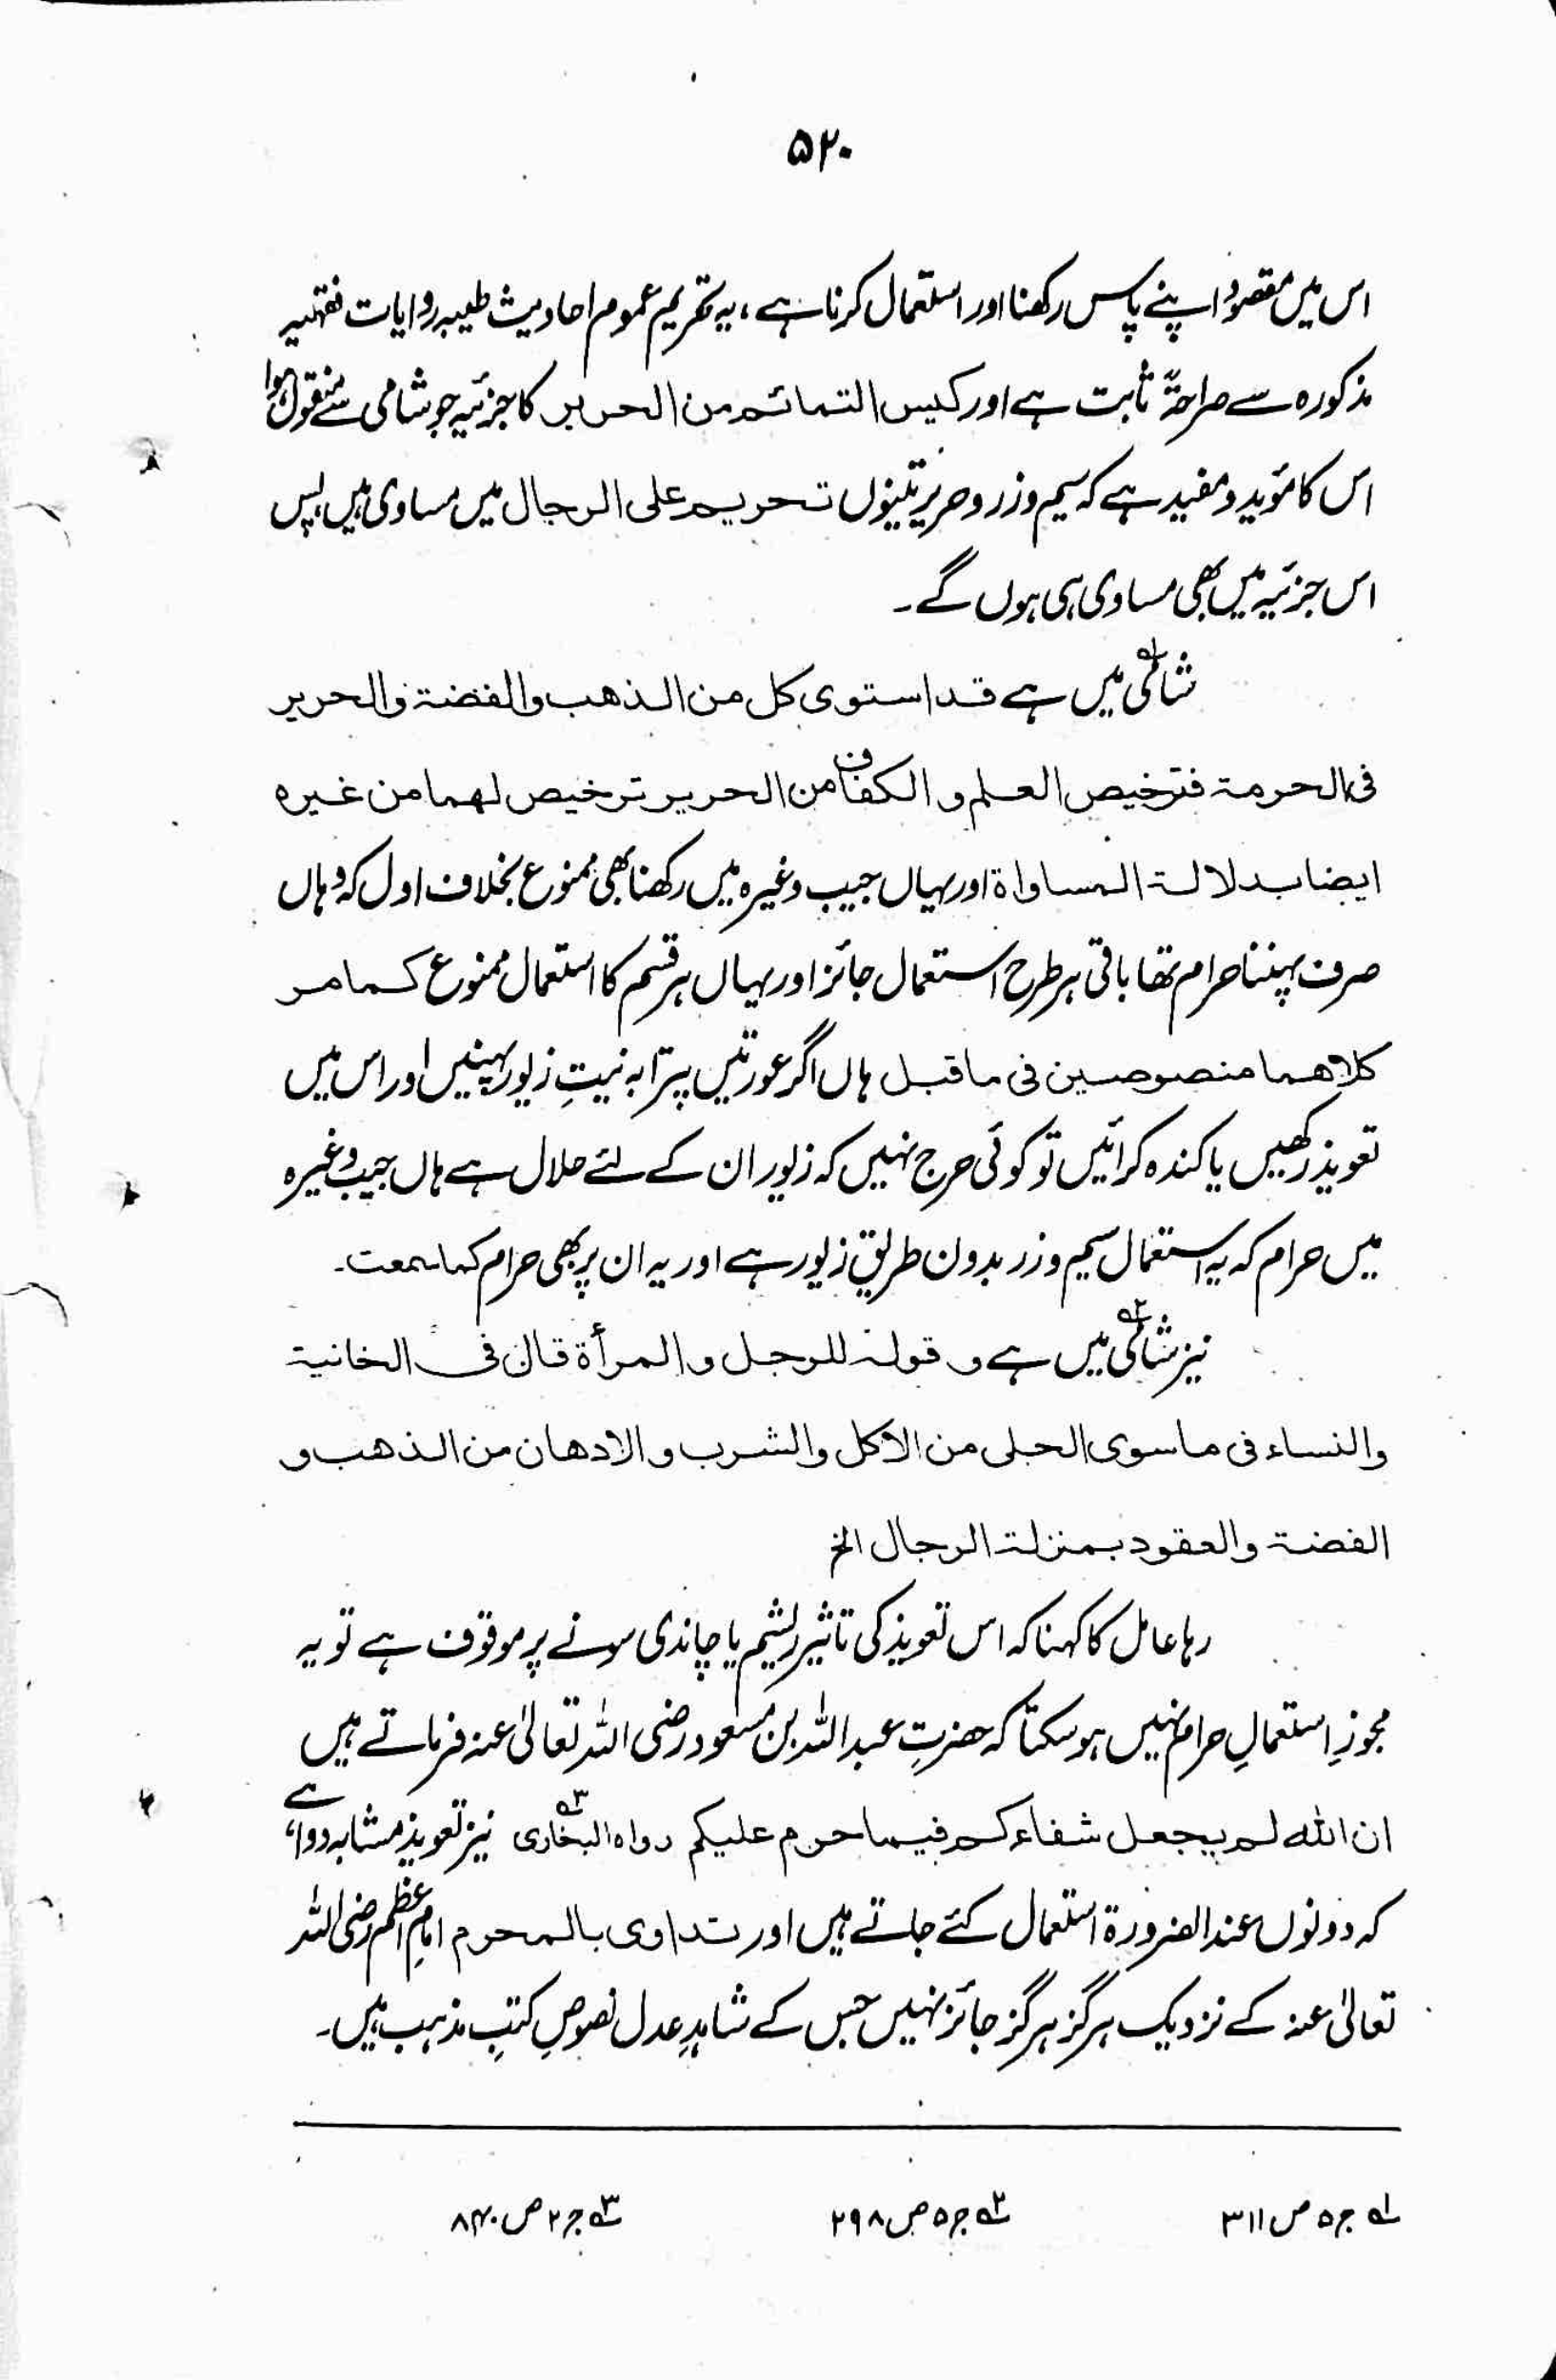 ۵۲۰
اس میں مقصود اپنے پاس رکھنا اور استعمال کرنا ہے، یہ تحریم عموم احادیث طیبہ روایات فقہیہ
مذکورہ سے صراحۃً ثابت ہے اور کیس التمائم من الحریر کا جزئیہ جو شامی سے منقول ہوا
اس کا مؤید و مفید ہے کہ سیم و زر و حریر تینوں تحریم علی الرجال میں مساوی ہیں، پس
اس جزئیہ میں بھی مساوی ہی ہوں گے۔
شامی۱ میں ہے قد استوی کل من الذهب والفضۃ والحریر
فی الحرمۃ فترخیص العلم و الکفاف من الحریر ترخیص لهما من غیره
ایضا بدلالۃ المساواۃ اور یہاں جیب وغیرہ میں رکھنا بھی ممنوع بخلاف اول کہ وہاں
صرف پہننا حرام تھا باقی ہر طرح استعمال جائز اور یہاں ہر قسم کا استعمال ممنوع کما مر
کلاهما منصوصین فی ما قبل ہاں اگر عورتیں پترا بہ نیتِ زیور پہنیں اور اس میں
تعویذ رکھیں یا کندہ کرائیں تو کوئی حرج نہیں کہ زیور ان کے لئے حلال ہے ہاں جیب وغیرہ
میں حرام کہ یہ استعمال سیم و زر بدون طریقِ زیور ہے اور یہ ان پر بھی حرام کما سمعت۔
نیز شامی۲ میں ہے و قولہ للرجل و المرأۃ قال فی الخانیۃ
والنساء فی ما سوی الحلی من الاکل والشرب و الادهان من الذهب و
الفضۃ والعقود بمنزلۃ الرجال الخ
رہا عامل کا کہنا کہ اس تعویذ کی تاثیر ریشم یا چاندی سونے پر موقوف ہے تو یہ
مجوزِ استعمالِ حرام نہیں ہو سکتا کہ حضرتِ عبداللہ بن مسعود رضی اللہ تعالیٰ عنہ فرماتے ہیں
ان الله لم یجعل شفاءکم فیما حرم علیکم رواہ البخاری۳ نیز تعویذ مشابہ دوا ہے،
کہ دونوں عند الضرورۃ استعمال کئے جاتے ہیں اور تداوی بالمحرم امامِ اعظم رضی اللہ
تعالیٰ عنہ کے نزدیک ہرگز ہرگز جائز نہیں جس کے شاہدِ عدل نصوصِ کتبِ مذہب ہیں۔
۱؎ ج ۵ ص ۳۱۱ ۲؎ ج ۵ ص ۲۹۸ ۳؎ ج ۲ ص ۸۴۰